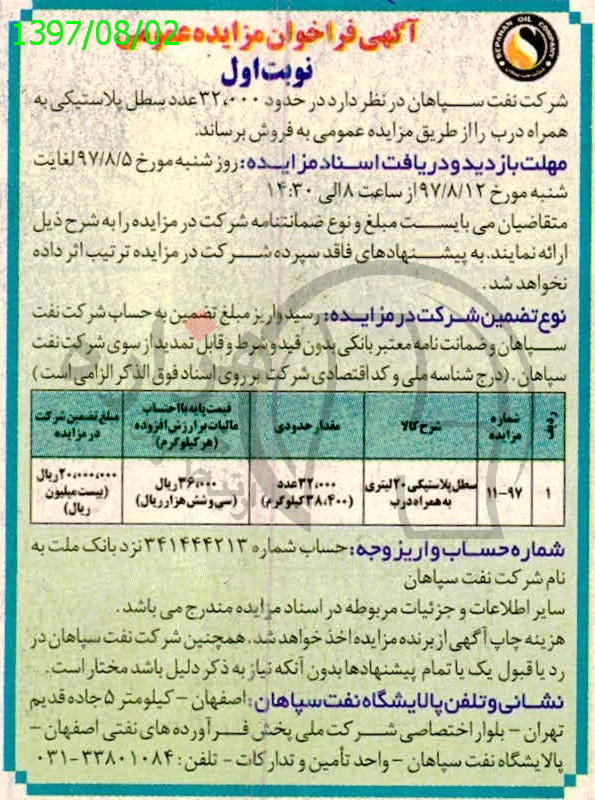 1397/08/02
آگهی فراخوان مزایده عمومی
نوبت اول
SEPAHAN OIL COMPANY
شرکت نفت سپاهان در نظر دارد در حدود ۳۲،۰۰۰ عدد سطل پلاستیکی به
همراه درب را از طریق مزایده عمومی به فروش برساند:
مهلت بازدید و دریافت اسناد مزایده: روز شنبه مورخ ۹۷/۸/۵ لغایت
شنبه مورخ ۹۷/۸/۱۲ از ساعت ۸ الی ۱۴:۳۰
متقاضیان می بایست مبلغ و نوع ضمانتنامه شرکت در مزایده را به شرح ذیل
ارائه نمایند. به پیشنهادهای فاقد سپرده شرکت در مزایده ترتیب اثر داده
نخواهد شد.
نوع تضمین شرکت در مزایده: رسید واریز مبلغ تضمین به حساب شرکت نفت
سپاهان و ضمانت نامه معتبر بانکی بدون قید و شرط و قابل تمدید از سوی شرکت نفت
سپاهان. (درج شناسه ملی و کد اقتصادی شرکت بر روی اسناد فوق الذکر الزامی است)
ردیف شماره مزایده شرح کالا مقدار حدودی قیمت پایه با احتساب مالیات بر ارزش افزوده (هر کیلوگرم) مبلغ تضمین شرکت در مزایده
۱ ۱۱-۹۷ سطل پلاستیکی ۲۰ لیتری به همراه درب ۳۲،۰۰۰ عدد (۳۸،۴۰۰ کیلوگرم) ۳۶،۰۰۰ ریال (سی و شش هزار ریال) ۲۰،۰۰۰،۰۰۰ ریال (بیست میلیون ریال)
شماره حساب واریز وجه: حساب شماره ۳۴۱۴۴۴۲۱۳ نزد بانک ملت به
نام شرکت نفت سپاهان
سایر اطلاعات و جزئیات مربوطه در اسناد مزایده مندرج می باشد.
هزینه چاپ آگهی از برنده مزایده اخذ خواهد شد. همچنین شرکت نفت سپاهان در
رد یا قبول یک یا تمام پیشنهادها بدون آنکه نیاز به ذکر دلیل باشد مختار است.
نشانی و تلفن پالایشگاه نفت سپاهان: اصفهان - کیلومتر ۵ جاده قدیم
تهران - بلوار اختصاصی شرکت ملی پخش فرآورده های نفتی اصفهان -
پالایشگاه نفت سپاهان - واحد تأمین و تدارکات - تلفن: ۳۳۸۰۱۰۸۴-۰۳۱